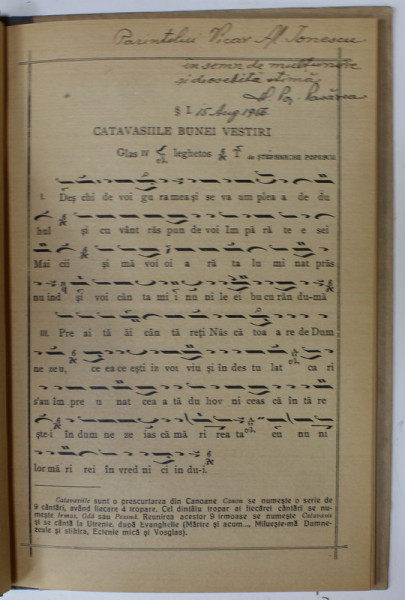 Parintelui Vicar Al. Ionescu
in semn de multumire
si deosebită stimă.
§ I. 15 Aug 1966
CATAVASIILE BUNEI VESTIRI
Glas IV leghetos de ȘTEFANACHE POPESCU
I. Deș chi de voi gu ra mea și se va um plea a de du
hul și cu vânt răs pun de voi Îm pă ră te e sei
Mai cii și mă voi oi a ră ta lu mi nat prăs
nu ind și voi cân ta mi i nu ni le ei bu cu rân du-mă
III. Pre ai tă ăi cân tă reți Năs că toa a re de Dum
ne ze o, ce ea ce ești iz vor viu și în des tu lat ca ri
s'au îm pre u nat cea a tă du hov ni ceas că în tă re
ște-i În dum ne ze ias că mă ri rea ta cu nu ni
lor mă ri rei În vred ni ci in du-i.
Catavasiile sunt o prescurtarea din Canoane. Canon se numește o serie de
9 cântări, având fiecare 4 tropare. Cel dintâiu tropar al fiecărei cântări se nu-
mește Irmos, Odă sau Peasnă. Reunirea acestor 9 irmoase se numește Catavasii
și se cântă la Utrenie, după Evanghelie (Mărire și acum..., Miluește-mă Dumne-
zeule și stihira, Ectenie mică și Vosglas).